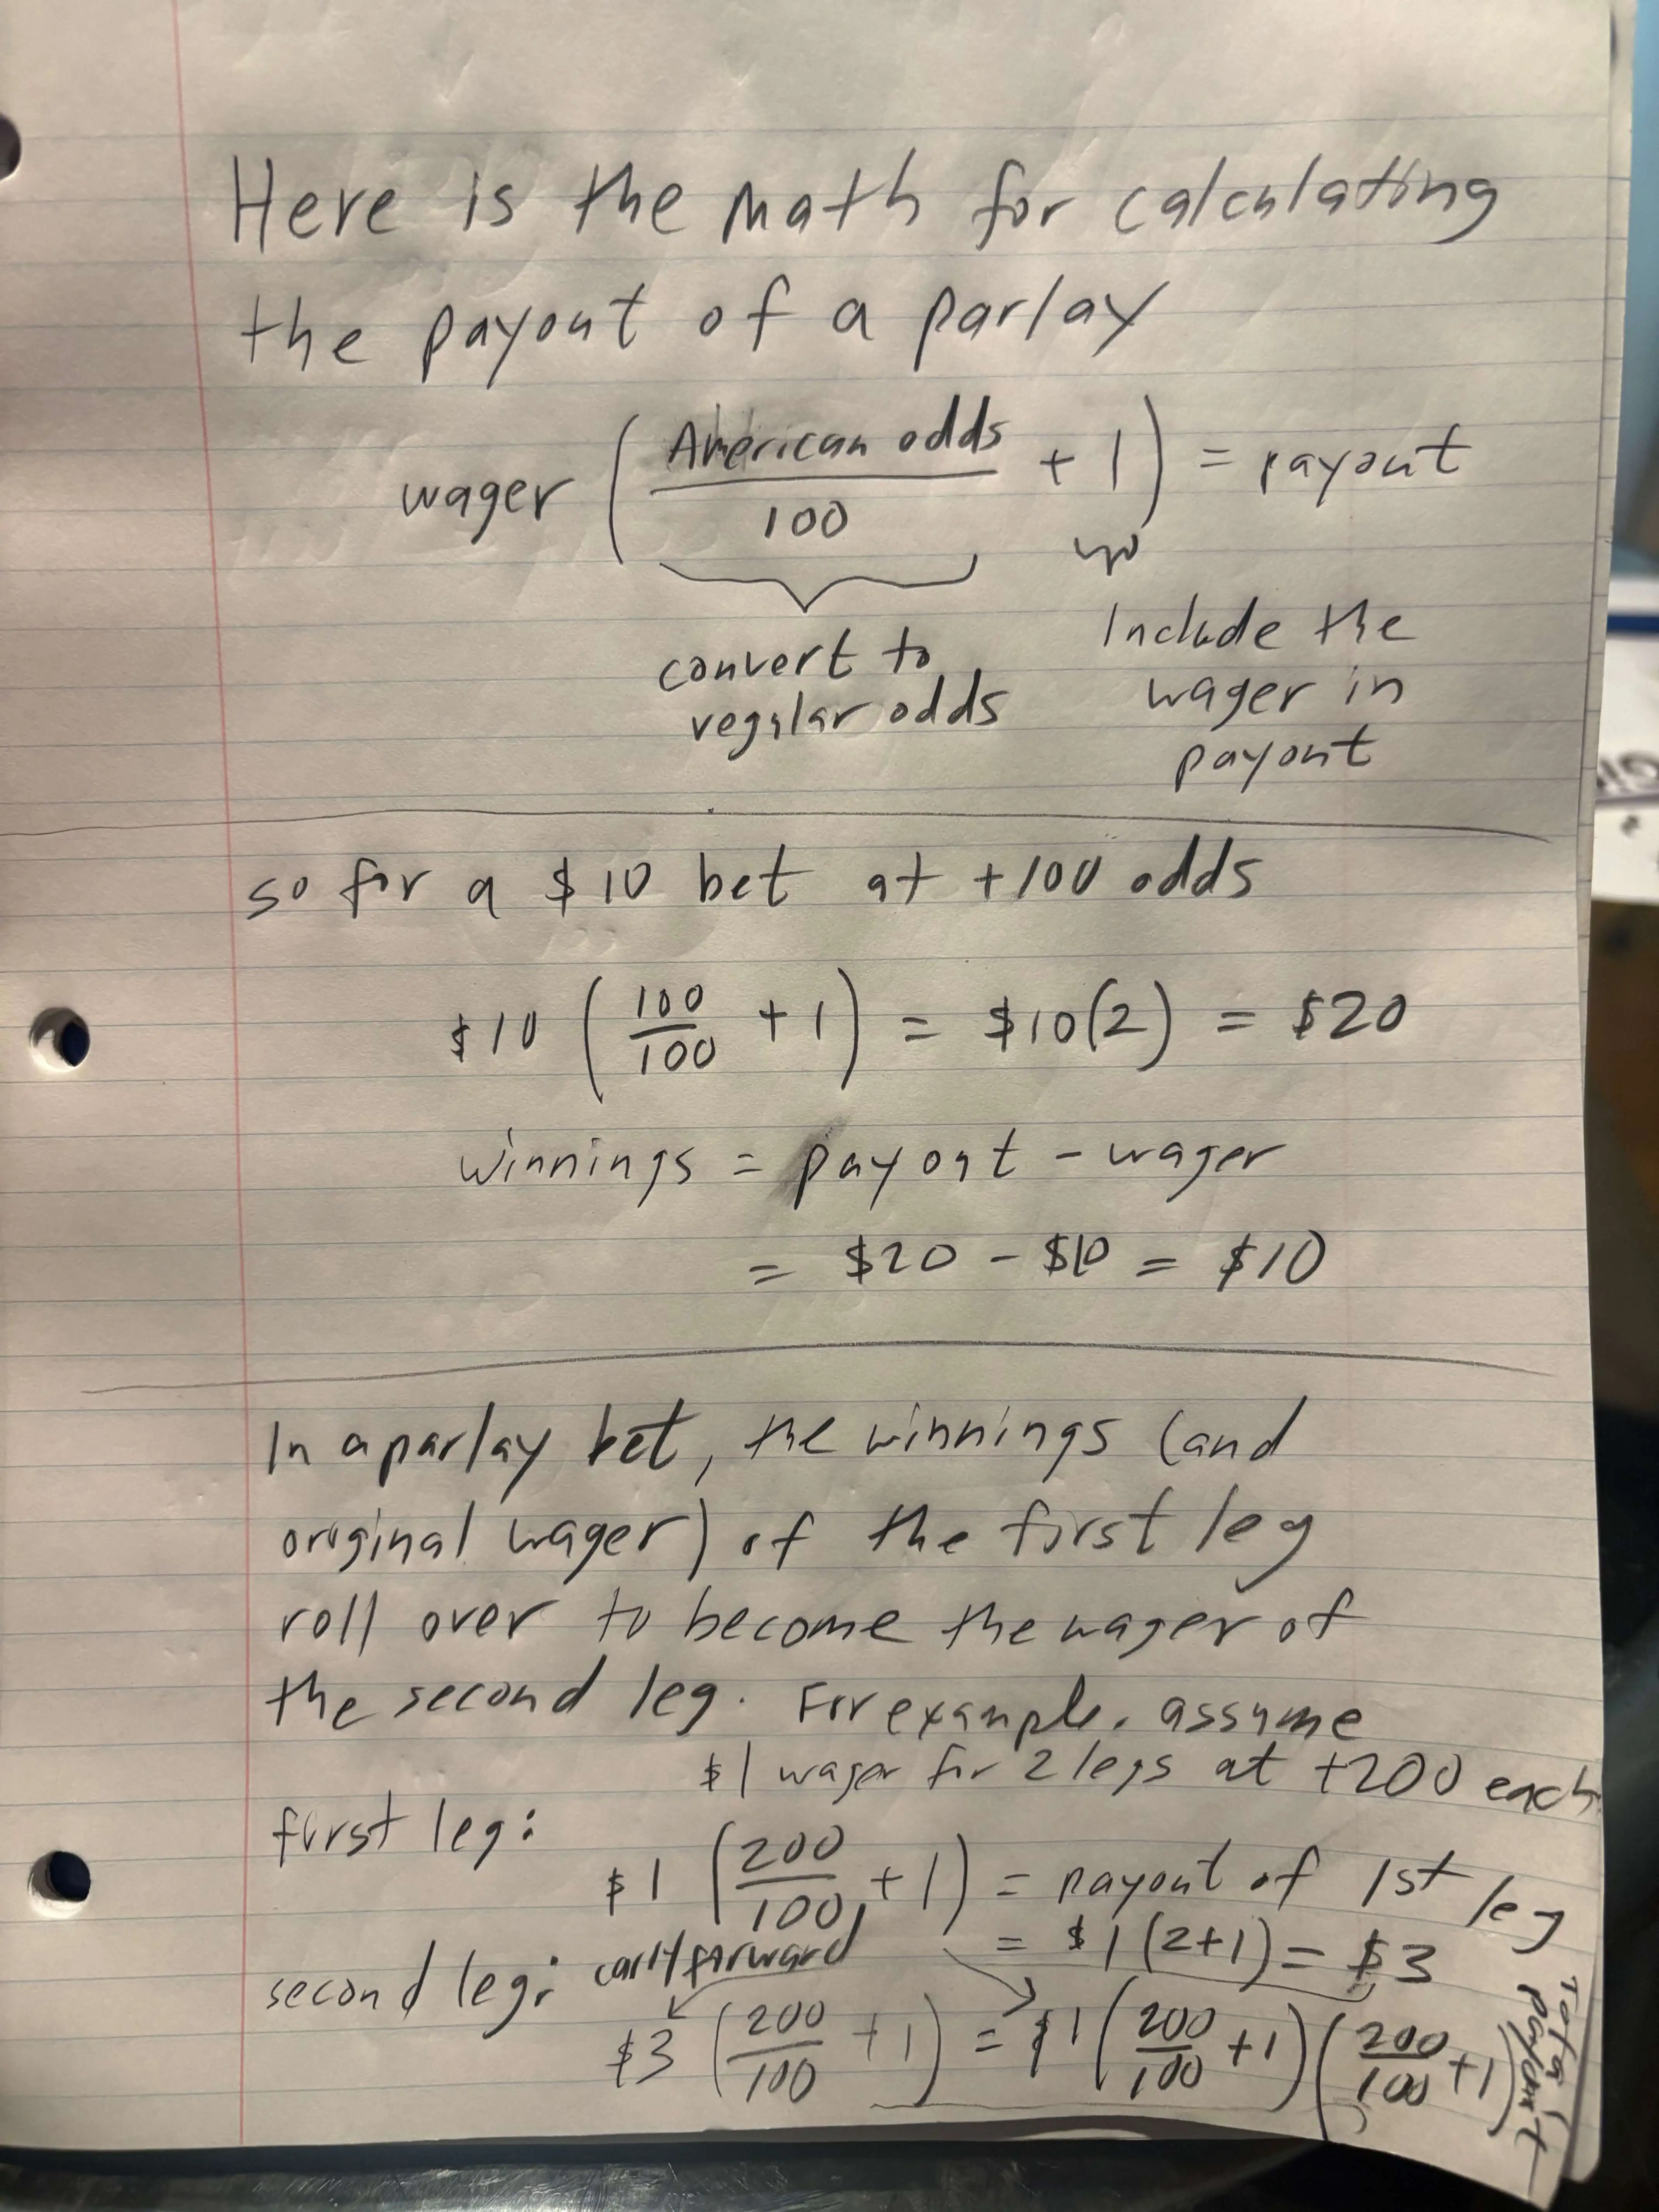 Here is the math for calculating
the payout of a parlay
wager ( American odds / 100 + 1 ) = payout
convert to
regular odds
Include the
wager in
payout
so for a $10 bet at +100 odds
$10 ( 100 / 100 + 1 ) = $10(2) = $20
winnings = payout - wager
= $20 - $10 = $10
In a parlay bet, the winnings (and
original wager) of the first leg
roll over to become the wager of
the second leg. For example, assume
$1 wager for 2 legs at +200 each
first leg:
$1 ( 200 / 100 + 1 ) = payout of 1st leg
= $1 (2+1) = $3
second leg: carry forward
$3 ( 200 / 100 + 1 ) = $1 ( 200 / 100 + 1 ) ( 200 / 100 + 1 )
Total
payout